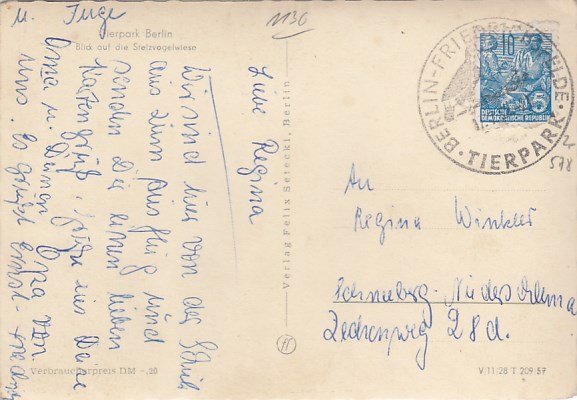 1136
Tierpark Berlin
Blick auf die Stelzvogelwiese
Liebe Regina
Wir sind hier von der Schule
aus zum Ausflug und
senden Dir einen lieben
Kartengruß, grüße uns Deine
Oma u. Deinen Opa von
uns. Es grüßt Ernst-
u. Inge
Verbraucherpreis DM -,20
Verlag Felix Setecki, Berlin
BERLIN-FRIEDRICHSFELDE · TIERPARK ·
10
5
DEUTSCHE
DEMOKRATISCHE REPUBLIK
578
An
Regina Winkler
Schneeberg-
Zechenweg 28d.
V/11/28 T 209/57